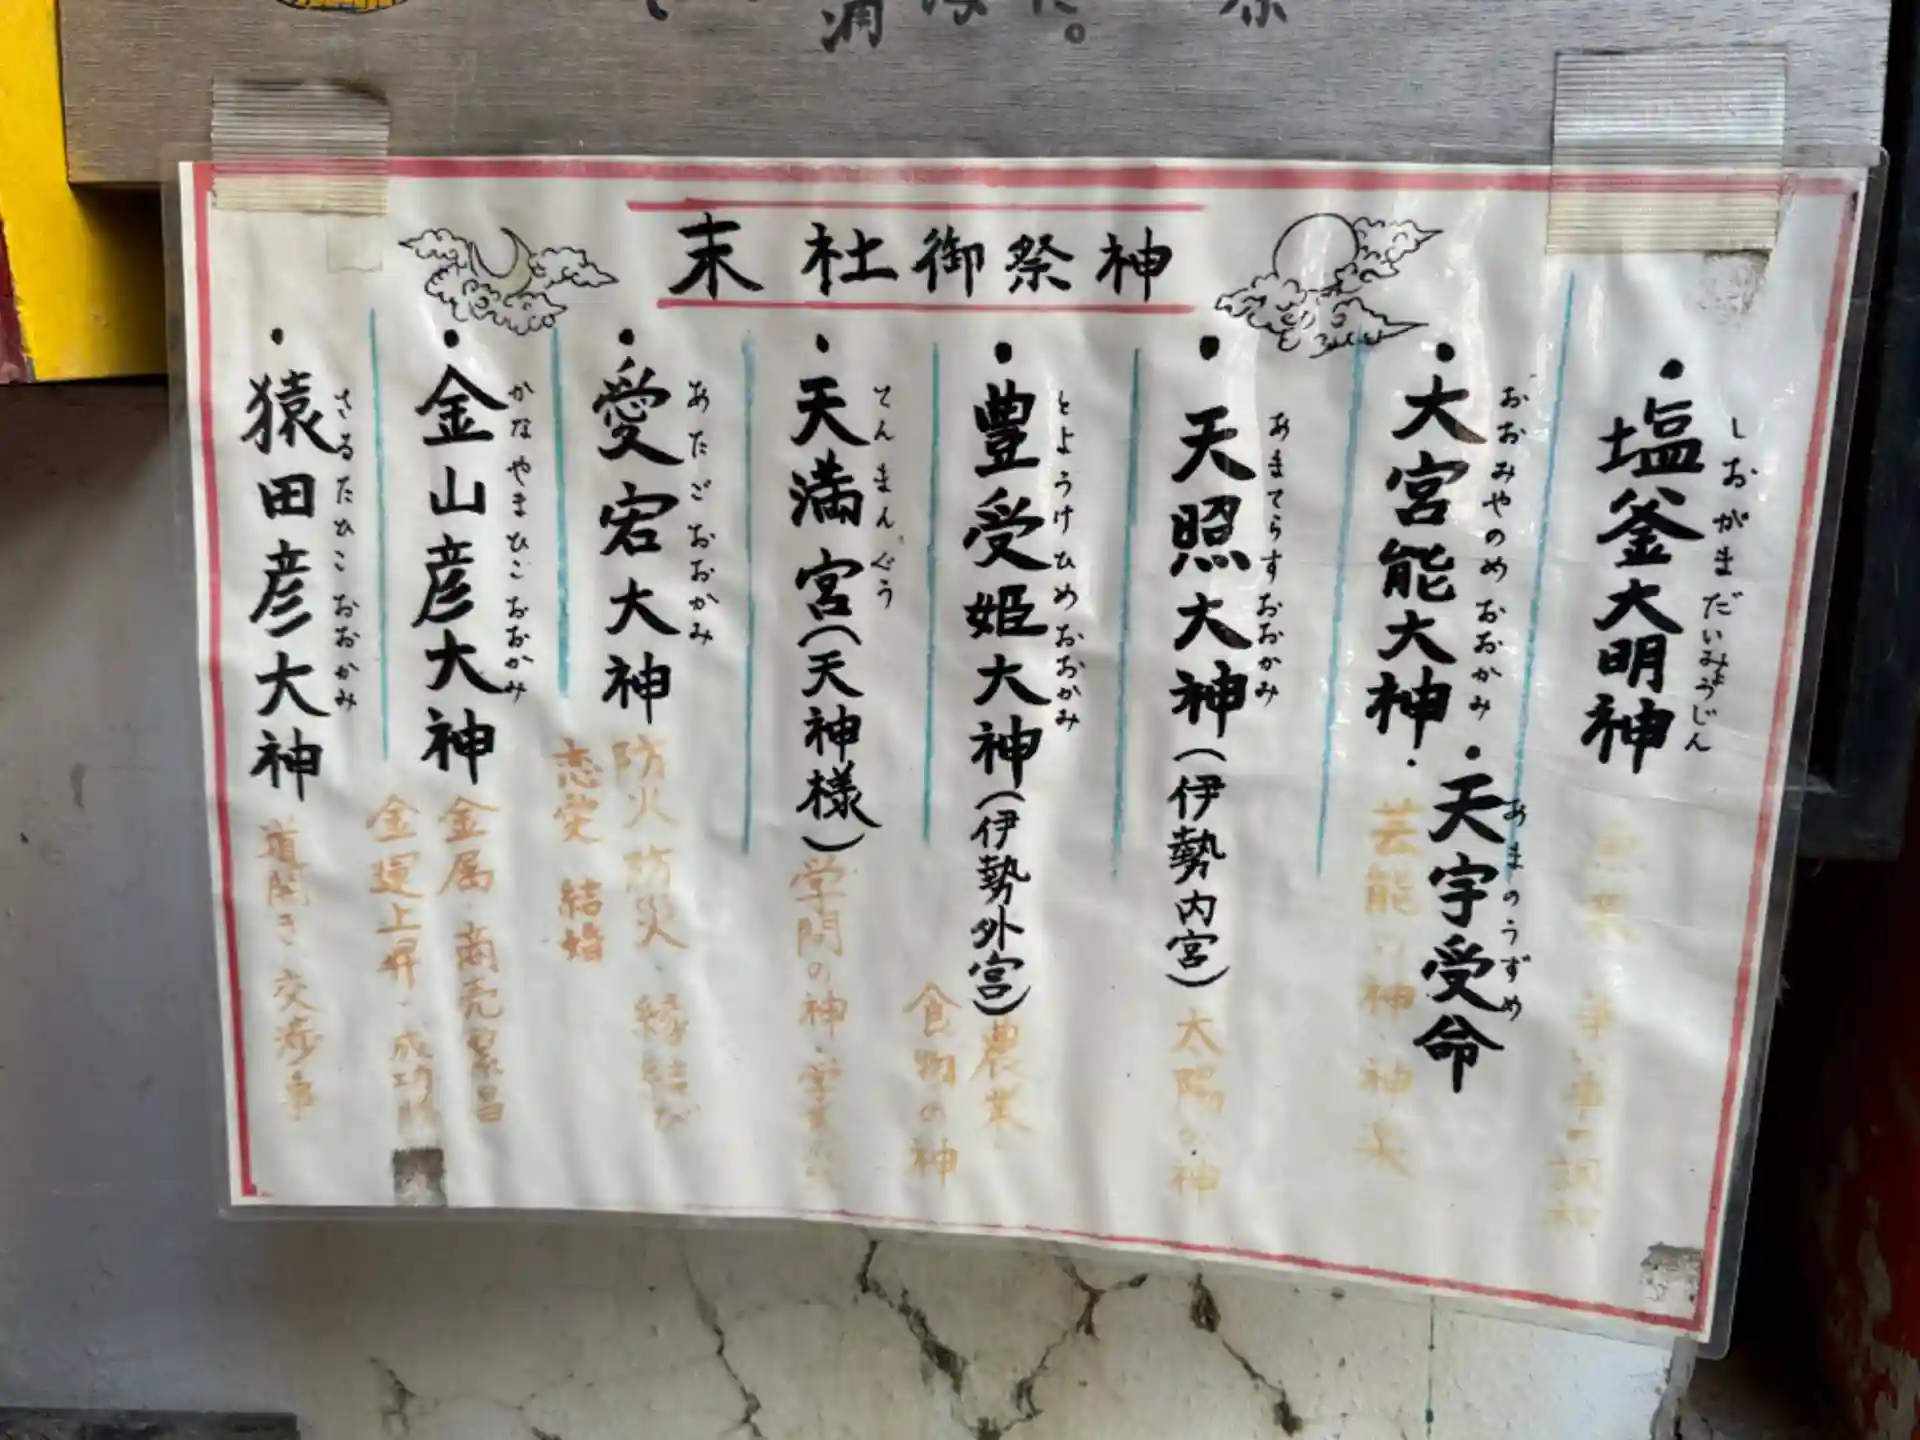 末社御祭神
・塩釜大明神
しおがまだいみょうじん
争い事の調和
・大宮能大神
おおみやのめおおかみ
・天宇受命
あまのうずめ
芸能の神・神楽
・天照大神(伊勢内宮)
あまてらすおおかみ
太陽の神
・豊受姫大神(伊勢外宮)
とようけひめおおかみ
農業
食物の神
・天満宮(天神様)
てんまんぐう
学問の神・学業
・愛宕大神
あたごおおかみ
防火防災・縁結び
恋愛 結婚
・金山彦大神
かなやまひこおおかみ
金属・商売繁昌
金運上昇・成功
・猿田彦大神
さるたひこおおかみ
道開き・交渉事